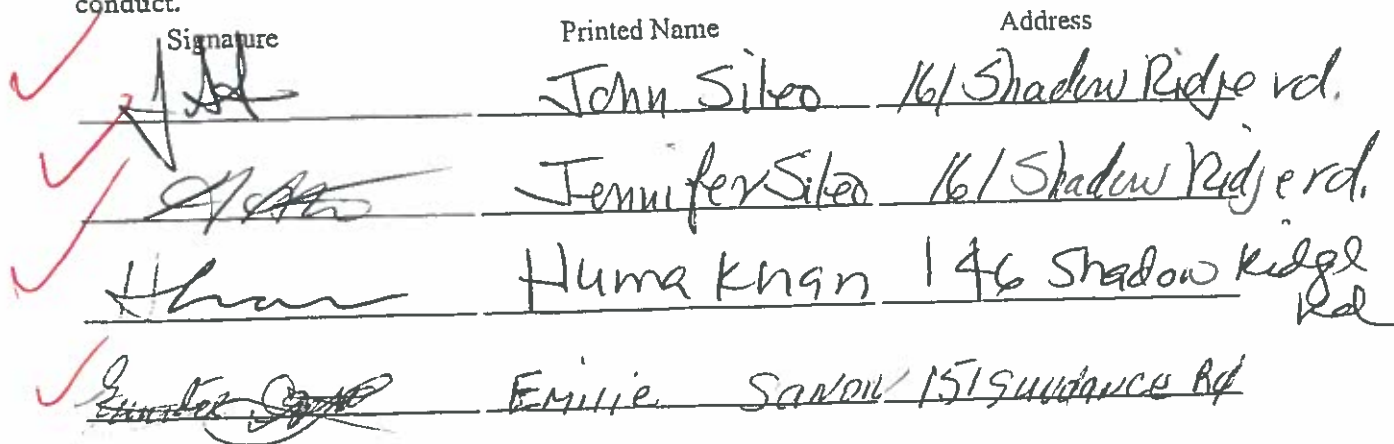 conduct.
Signature Printed Name Address
John Sileo 161 Shadow Ridge rd.
Jennifer Sileo 161 Shadow Ridge rd.
Huma Khan 146 Shadow Ridge
Rd
Emilie 151 Rd